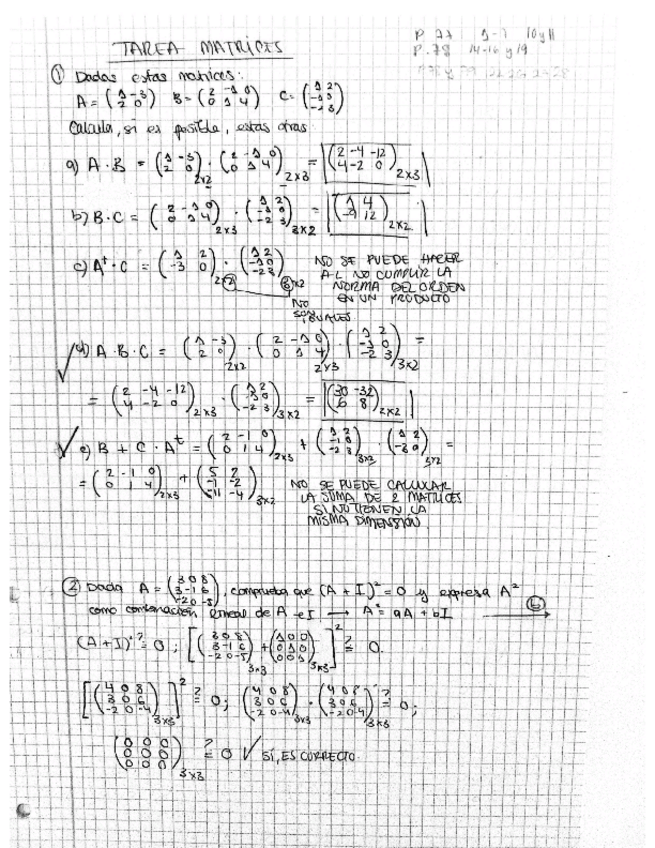 TAREA MATRICES
P. 77 1-7 10 y 11
P. 78 14-16 y 19
① Dadas estas matrices:
A = (1 -3 / 2 0) B = (2 -1 0 / 0 1 4) C = (1 2 / -1 0 / -2 3)
Calcula, si es posible, estas otras
a) A · B = (1 -3 / 2 0)2x2 · (2 -1 0 / 0 1 4)2x3 = (2 -4 -12 / 4 -2 0)2x3
b) B · C = (2 -1 0 / 0 1 4)2x3 · (1 2 / -1 0 / -2 3)3x2 = (1 4 / -9 12)2x2
c) Aᵗ · C = (1 2 / -3 0)2x2 · (1 2 / -1 0 / -2 3)3x2 NO SE PUEDE HACER
AL NO CUMPLIR LA
NORMA DEL ORDEN
EN UN PRODUCTO
NO
SON IGUALES
√ d) A · B · C = (1 -3 / 2 0)2x2 · (2 -1 0 / 0 1 4)2x3 · (1 2 / -1 0 / -2 3)3x2 =
= (2 -4 -12 / 4 -2 0)2x3 · (1 2 / -1 0 / -2 3)3x2 = (30 -32 / 6 8)2x2
√ e) B + C · Aᵗ = (2 -1 0 / 0 1 4)2x3 + (1 2 / -1 0 / -2 3)3x2 · (1 2 / -3 0)2x2 =
= (2 -1 0 / 0 1 4)2x3 + (-5 2 / -1 -2 / -11 -4)3x2 NO SE PUEDE CALCULAR
LA SUMA DE 2 MATRICES
SI NO TIENEN LA
MISMA DIMENSIÓN
② Dada A = (3 0 8 / 3 -1 6 / -2 0 -5), comprueba que (A + I)² = 0 y expresa A²
como combinación lineal de A e I → A² = aA + bI b
(A + I)² ≟ 0; [(3 0 8 / 3 -1 6 / -2 0 -5)3x3 + (1 0 0 / 0 1 0 / 0 0 1)3x3]² ≟ 0.
[(4 0 8 / 3 0 6 / -2 0 -4)3x3]² ≟ 0; (4 0 8 / 3 0 6 / -2 0 -4)3x3 · (4 0 8 / 3 0 6 / -2 0 -4)3x3 ≟ 0;
(0 0 0 / 0 0 0 / 0 0 0)3x3 ≟ 0 √ SÍ, ES CORRECTO.